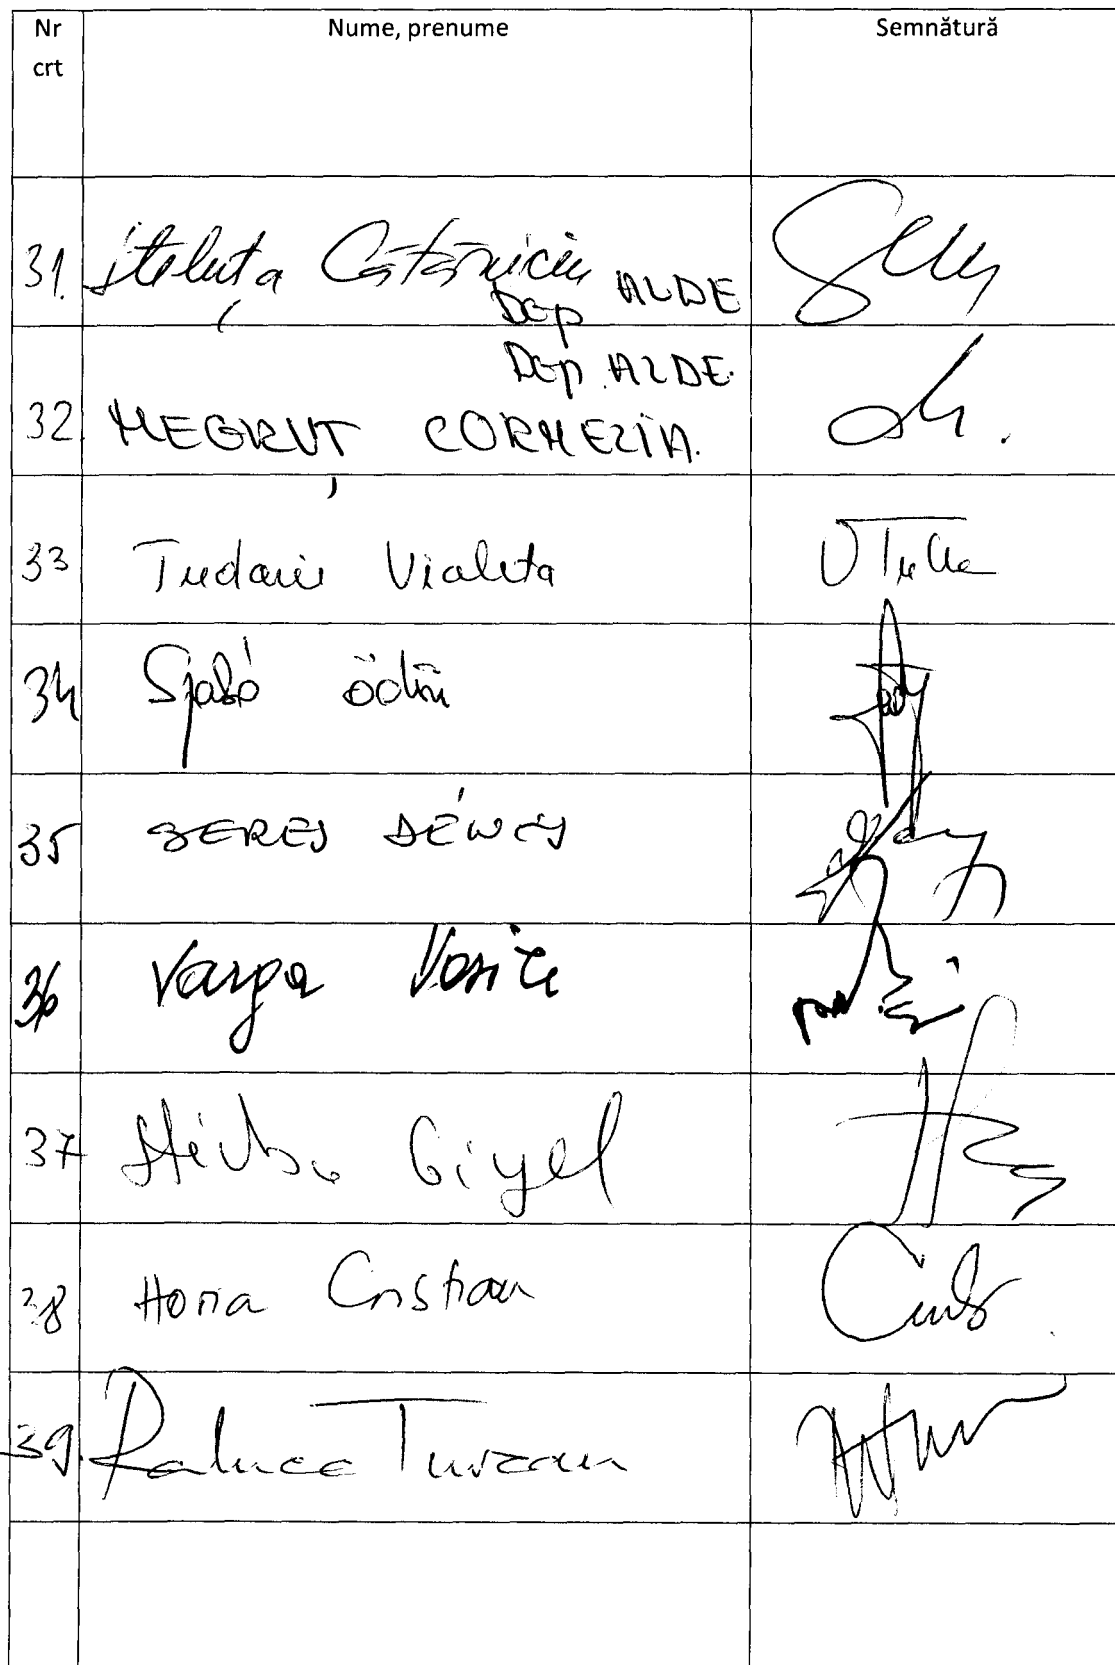 Nr crt Nume, prenume Semnătură
31. Steluța Cătăniciu Dep ALDE
Dep. ALDE
32. NEGRUȚ CORNELIA.
33 Tudorie Violeta
34 Szabó Ödön
35 SERES DÉNES
36 Varga Vasile
37 Știrbu Gigel
38 Horia Cristian
39. Raluca Turcan